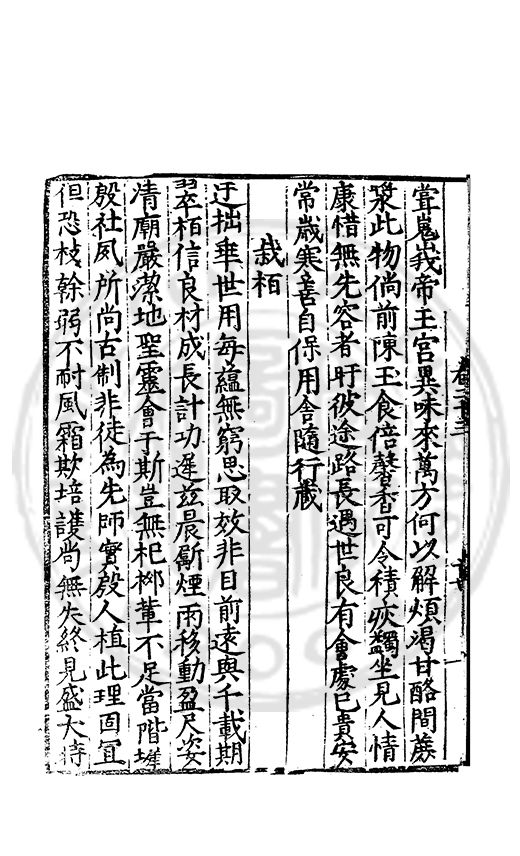 嵬峩帝王宮異味來萬方何以解煩渴甘酪間蔗
漿此物倘前陳玉食倍馨香可令積疢蠲坐見人情
康惜無先容者盱彼途路長遇世良有會處已貴安
常歲寒善自保用舍隨行藏
栽栢
迂拙乖世用每蘊無窮思取效非目前遠與千載期
翠栢信良材成長計功遲兹晨斸煙雨移動盈尺姿
清廟嚴潔地聖靈會于斯豈無杞栁輩不足當階墀
殷社夙所尚古制非徒為先師實殷人植此理固宜
但恐枝榦弱不耐風霜欺培護尚無失終見盛大時